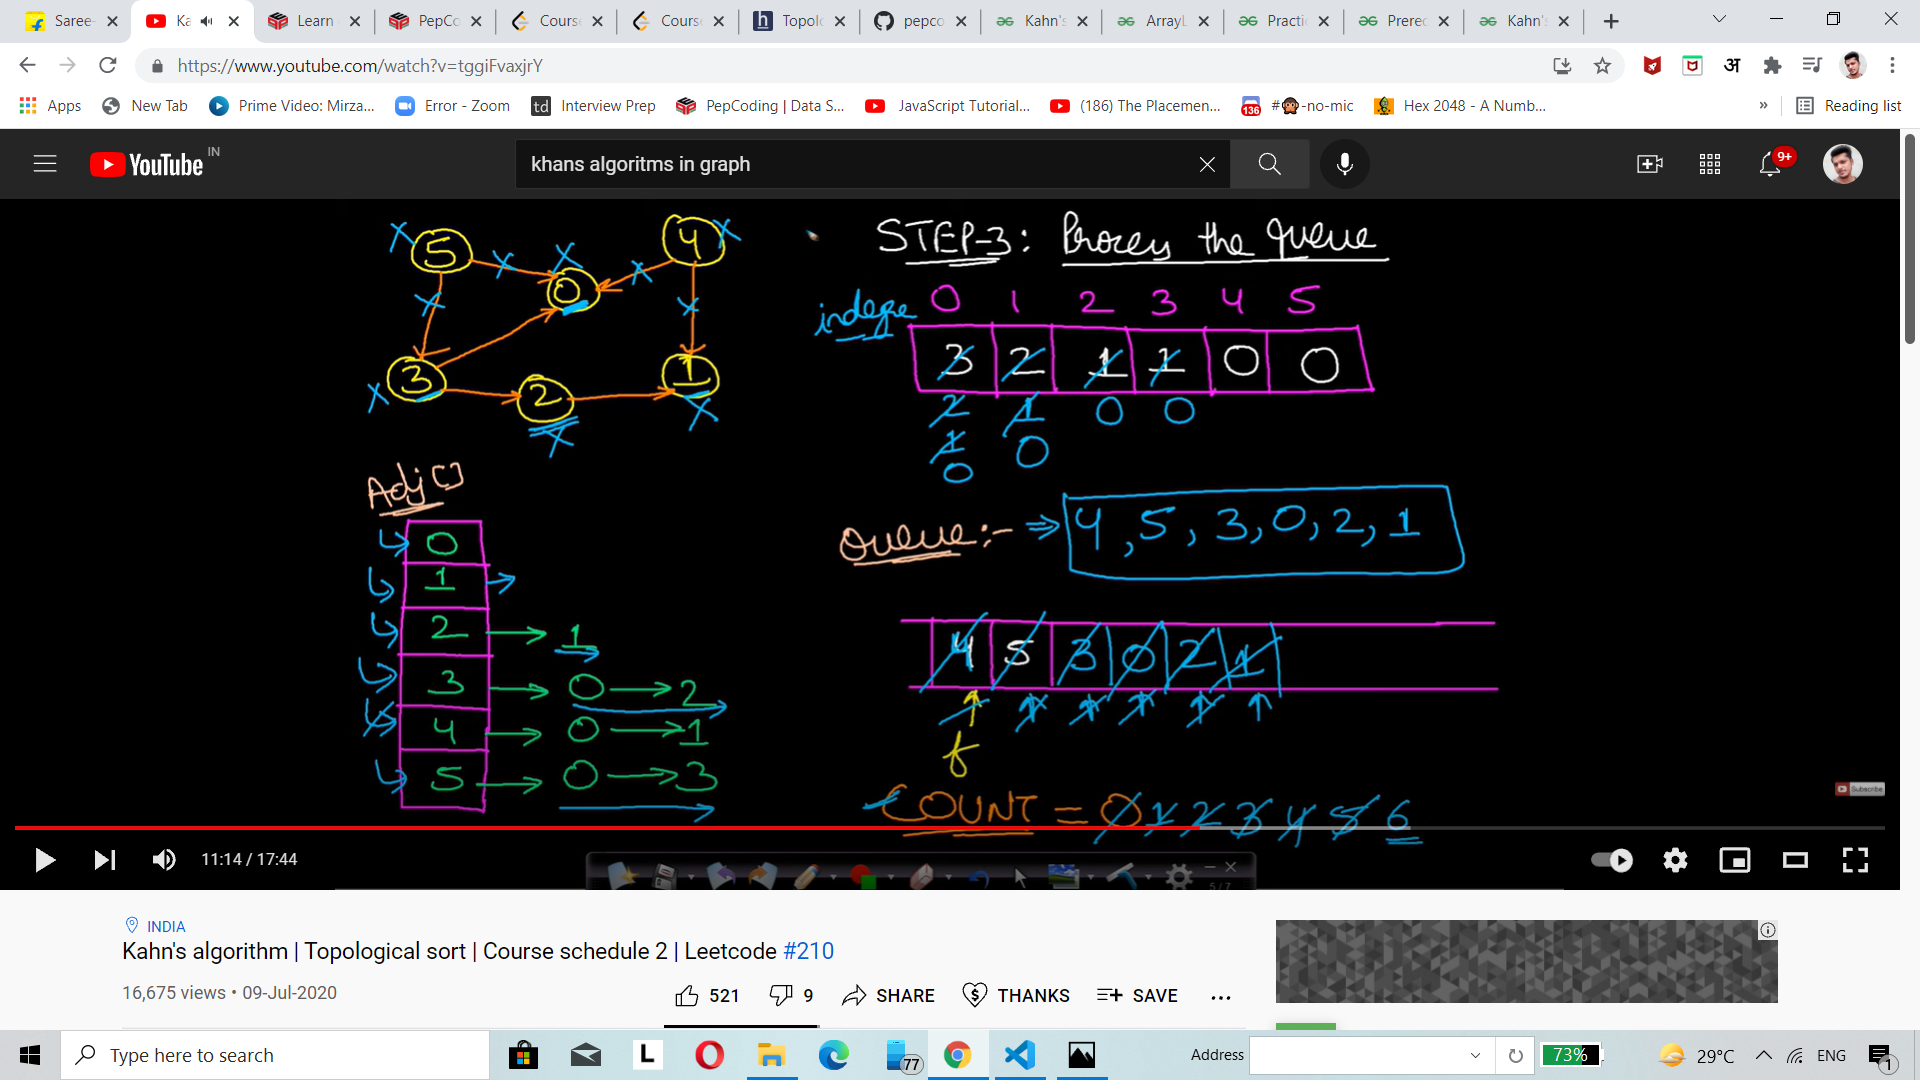 Saree-
Ka
Learn
PepCo
Course
Course
Topolo
pepco
Kahn's
ArrayL
Practic
Prerec
Kahn's
https://www.youtube.com/watch?v=tggiFvaxjrY
Apps
New Tab
Prime Video: Mirza...
Error - Zoom
Interview Prep
PepCoding | Data S...
JavaScript Tutorial...
(186) The Placemen...
#🙊-no-mic
Hex 2048 - A Numb...
»
Reading list
YouTube IN
khans algoritms in graph
9+
5 4
0
3 2 1
STEP-3: Process the Queue
0 1 2 3 4 5
indegre
3 2 1 1 0 0
2 1 0 0
1 0
0
Adj[]
0
1
2 → 1
3 → 0 → 2
4 → 0 → 1
5 → 0 → 3
Queue:- ⇒ 4, 5, 3, 0, 2, 1
4 5 3 0 2 1
f
COUNT = 0 1 2 3 4 5 6
Subscribe
11:14 / 17:44
5/7
INDIA
Kahn's algorithm | Topological sort | Course schedule 2 | Leetcode #210
16,675 views • 09-Jul-2020
521
9
SHARE
THANKS
SAVE
Type here to search
L
77
Address
73%
29°C
ENG
1